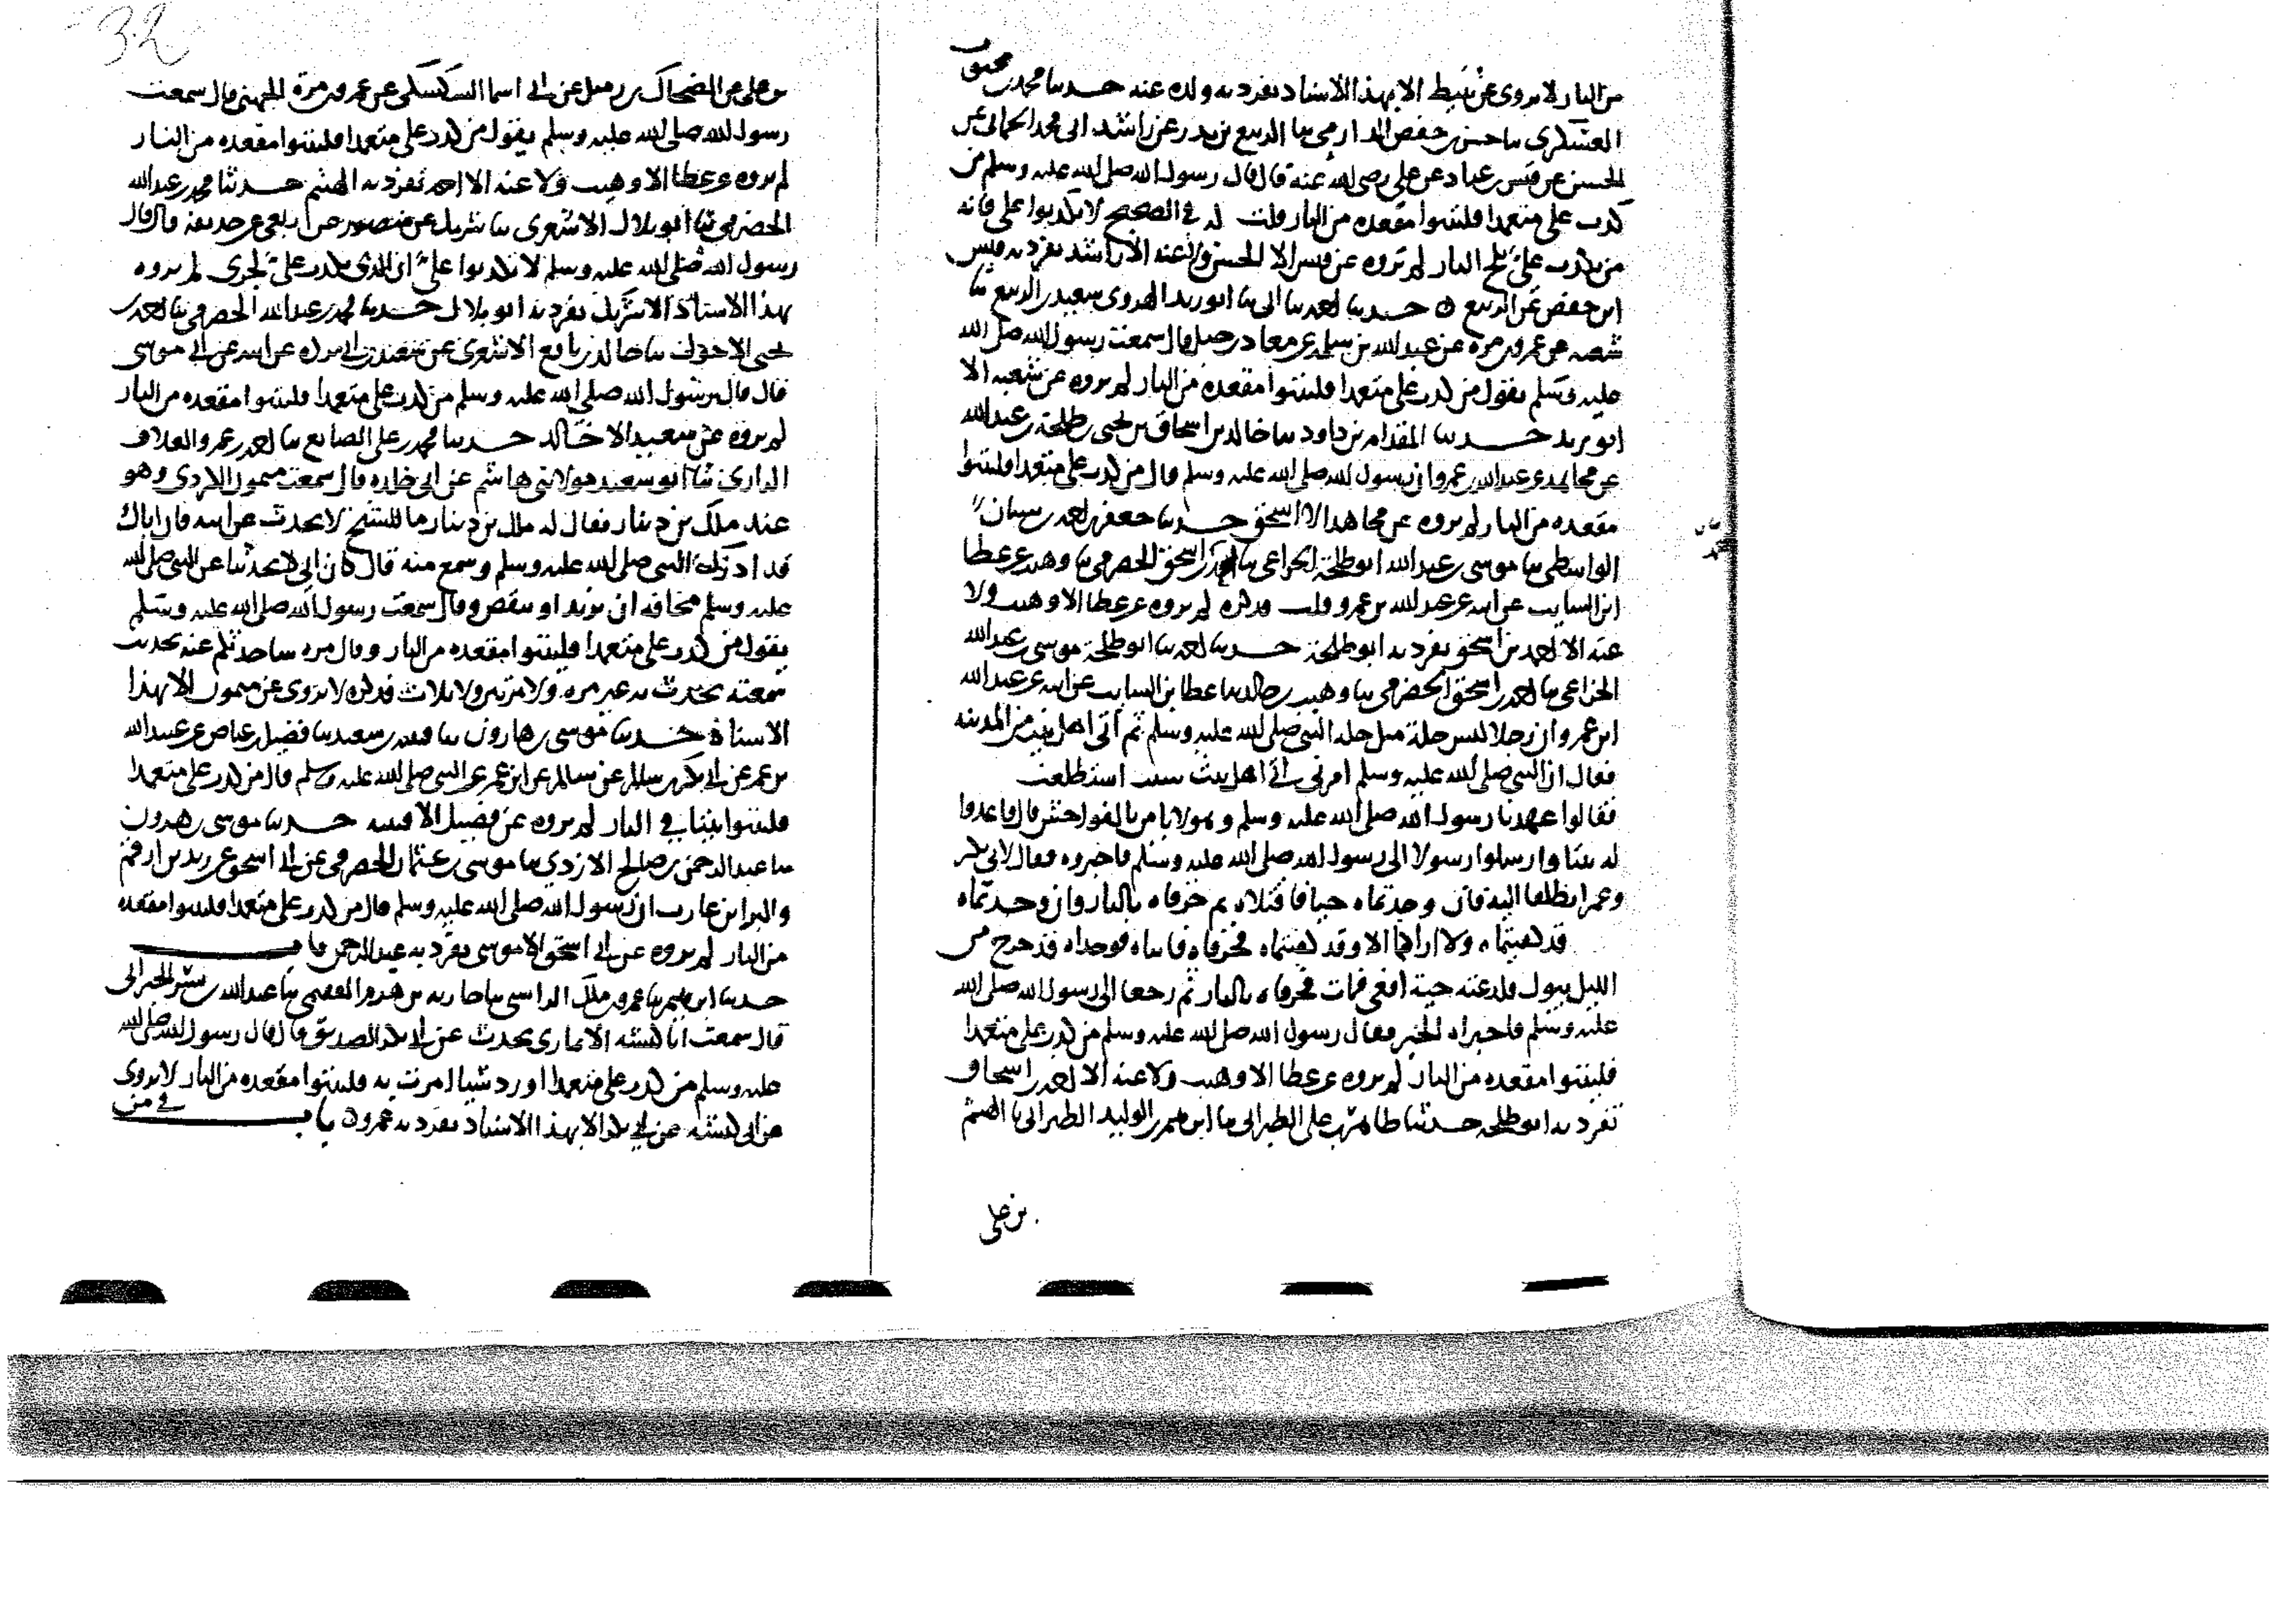 من النار لا يروى عن نبيط الا بهذا الاسناد تفرد به ولده عنه حدثنا محمد بن
العسكري ثنا حسن بن حفص الدارمي ثنا الربيع بن بدر عن راشد ابي محمد الحماني عن
الحسن عن قيس بن عباد عن علي رضي الله عنه قال قال رسول الله صلى الله عليه وسلم من
كذب علي متعمدا فليتبوا مقعده من النار قلت له في الصحيح لا تكذبوا علي فانه
من يكذب علي يلج النار لم يروه عن قيس الا الحسن ولا عنه الا راشد تفرد به
ابن حفص عن الربيع حدثنا احمد ثنا ابي ثنا ابو زيد الهروي سعيد بن الربيع ثنا
شعبه عن عمرو بن مره عن عبد الله بن سلمه عن معاذ بن جبل قال سمعت رسول الله صلى الله
عليه وسلم يقول من كذب علي متعمدا فليتبوا مقعده من النار لم يروه عن شعبه الا
ابو زيد حدثنا المقدام بن داود ثنا خالد بن اسحاق بن يحيى بن طلحة بن عبد الله
عن مجاهد عن عبد الله بن عمرو ان رسول الله صلى الله عليه وسلم قال من كذب علي متعمدا فليتبوا
مقعده من النار لم يروه عن مجاهد الا اسحق حدثنا جعفر بن احمد بن سنان
الواسطي ثنا موسى بن عبد الله ابو طلحة الخزاعي ثنا احمد بن اسحق الحضرمي ثنا وهيب عن عطا
ابن السايب عن ابيه عن عبد الله بن عمرو قلت فذكره لم يروه عن عطا الا وهيب ولا
عنه الا احمد بن اسحق تفرد به ابو طلحة حدثنا احمد ثنا ابو طلحة موسى بن عبد الله
الخزاعي ثنا احمد بن اسحق الحضرمي ثنا وهيب بن خالد ثنا عطا بن السايب عن ابيه عن عبد الله
ابن عمرو ان رجلا لبس حلة مثل حلة النبي صلى الله عليه وسلم ثم اتى اهل بيت من المدينه
فقال ان النبي صلى الله عليه وسلم امرني اي اهل بيت شئت استطلعت
فقالوا عهدنا رسول الله صلى الله عليه وسلم وهو لا يامر بالفواحش قال فاعدوا
له بيتا وارسلوا رسولا الى رسول الله صلى الله عليه وسلم فاخبروه فقال لابي بكر
وعمر انطلقا اليه فان وجدتماه حيا فاقتلاه ثم حرقاه بالنار وان وجدتماه
قد كفيتماه ولا اراكما الا وقد كفيتماه فحرقاه فاتياه فوجداه قد خرج من
الليل يبول فلدغته حية افعى فمات فحرقاه بالنار ثم رجعا الى رسول الله صلى الله
عليه وسلم فاخبراه الخبر فقال رسول الله صلى الله عليه وسلم من كذب علي متعمدا
فليتبوا مقعده من النار لم يروه عن عطا الا وهيب ولا عنه الا احمد بن اسحاق
تفرد به ابو طلحة حدثنا طاهر بن علي الطبراني ثنا ابراهيم بن الوليد الطبراني ثنا الهيثم
بن علي
بن علي عن الضحاك بن رمل عن ابي اسما السكسكي عن عمرو بن مرة الجهني قال سمعت
رسول الله صلى الله عليه وسلم يقول من كذب علي متعمدا فليتبوا مقعده من النار
لم يروه عن عطا الا وهيب ولا عنه الا احمد تفرد به الهيثم حدثنا محمد بن عبد الله
الحضرمي ثنا ابو بلال الاشعري ثنا شريك عن منصور عن ربعي عن حذيفه قال قال
رسول الله صلى الله عليه وسلم لا تكذبوا علي ان الذي يكذب علي لجري لم يروه
بهذا الاسناد الا شريك تفرد به ابو بلال حدثنا محمد بن عبد الله الحضرمي ثنا احمد بن
يحيى الاحول ثنا خالد بن نافع الاشعري عن سعيد بن ابي برده عن ابيه عن ابي موسى
قال قال رسول الله صلى الله عليه وسلم من كذب علي متعمدا فليتبوا مقعده من النار
لم يروه عن سعيد الا خالد حدثنا محمد بن علي الصايغ ثنا احمد بن عمرو العلاف
الرازي ثنا ابو سعيد مولا بني هاشم عن ابي خلده قال سمعت ميمون الكردي وهو
عند ملك بن دينار فقال له ملك بن دينار ما للشيخ لا يحدث عن ابيه فان اباك
قد ادرك النبي صلى الله عليه وسلم وسمع منه قال كان ابي لا يحدثنا عن النبي صلى الله
عليه وسلم مخافة ان يزيد او ينقص وقال سمعت رسول الله صلى الله عليه وسلم
يقول من كذب علي متعمدا فليتبوا مقعده من النار وقال مره ساحدثكم عنه بحديث
سمعته يحدث به غير مره ولا مرتين ولا ثلاث فذكره لا يروى عن ميمون الا بهذا
الاسناد حدثنا موسى بن هارون ثنا قتيبه بن سعيد ثنا فضيل بن عياض عن عبيد الله
بن عمر عن ابي بكر بن سالم عن سالم عن ابن عمر عن النبي صلى الله عليه وسلم قال من كذب علي متعمدا
فليتبوا بيتا في النار لم يروه عن فضيل الا قتيبه حدثنا موسى بن هرون
ثنا عبد الرحمن بن صالح الازدي ثنا موسى بن عثمان الحضرمي عن ابي اسحق عن زيد بن ارقم
والبرا بن عازب ان رسول الله صلى الله عليه وسلم قال من كذب علي متعمدا فليتبوا مقعده
من النار لم يروه عن ابي اسحق الا موسى تفرد به عبد الرحمن
حدثنا ابراهيم ثنا عمرو بن ملك الراسبي ثنا جاريه بن هرم الفقيمي ثنا عبد الله بن بسر الحبراني
قال سمعت ابا كبشه الانماري يحدث عن ابي بكر الصديق قال قال رسول الله صلى الله
عليه وسلم من كذب علي متعمدا او رد شيا امرت به فليتبوا مقعده من النار لا يروى
عن ابي كبشه عن ابي بكر الا بهذا الاسناد تفرد به عمرو باب في من